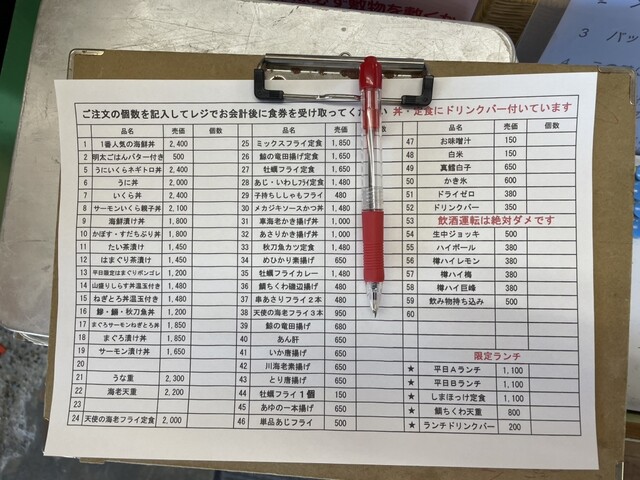 ご注文の個数を記入してレジでお会計後に食券を受け取ってください 丼・定食にドリンクバー付いています
品名 売価 個数
1 1番人気の海鮮丼 2,400
2 明太ごはんバター付き 500
5 うにいくらネギトロ丼 2,400
6 うに丼 2,000
7 いくら丼 2,400
8 サーモンいくら親子丼 2,100
9 海鮮漬け丼 1,800
10 かぼす・すだちぶり丼 1,800
11 たい茶漬け 1,450
12 はまぐり茶漬け 1,450
13 平日限定はまぐりボンゴレ 1,200
14 山盛りしらす丼温玉付き 1,650
15 ねぎとろ丼温玉付き 1,650
16 鯵・鰯・秋刀魚丼 1,200
17 まぐろサーモンねぎとろ丼 1,850
18 まぐろ漬け丼 1,850
19 サーモン漬け丼 1,650
20
21 うな重 2,300
22 海老天重 2,200
23
24 天使の海老フライ定食 2,000
品名 売価 個数
25 ミックスフライ定食 1,850
26 鯨の竜田揚げ定食 1,650
27 牡蠣フライ定食 1,650
28 あじ・いわしフライ定食 1,480
29 子持ちししゃもフライ 1,480
30 メカジキソースかつ丼 1,480
31 車海老かき揚げ丼 1,000
32 あさりかき揚げ丼 1,000
33 秋刀魚カツ定食 1,480
34 めひかり素揚げ 650
35 牡蠣フライカレー 1,480
36 鯛ちくわ磯辺揚げ 480
37 串あさりフライ2本 480
38 天使の海老フライ3本 950
39 鯨の竜田揚げ 680
40 あん肝 650
41 いか唐揚げ 650
42 川海老素揚げ 650
43 とり唐揚げ 450
44 牡蠣フライ1個 150
45 あゆの一本揚げ 650
46 単品あじフライ 500
品名 売価 個数
47 お味噌汁 150
48 白米 150
49 真鱈白子 650
50 かき氷 600
51 ドライゼロ 350
52 ドリンクバー 350
53 飲酒運転は絶対ダメです
54 生中ジョッキ 500
55 ハイボール 380
56 樽ハイレモン 380
57 樽ハイ梅 380
58 樽ハイ巨峰 380
59 飲み物持ち込み 500
60
限定ランチ
★ 平日Aランチ 1,100
★ 平日Bランチ 1,100
★ しまほっけ定食 1,100
★ 鯛ちくわ天重 800
★ ランチドリンクバー 200
3 パッ